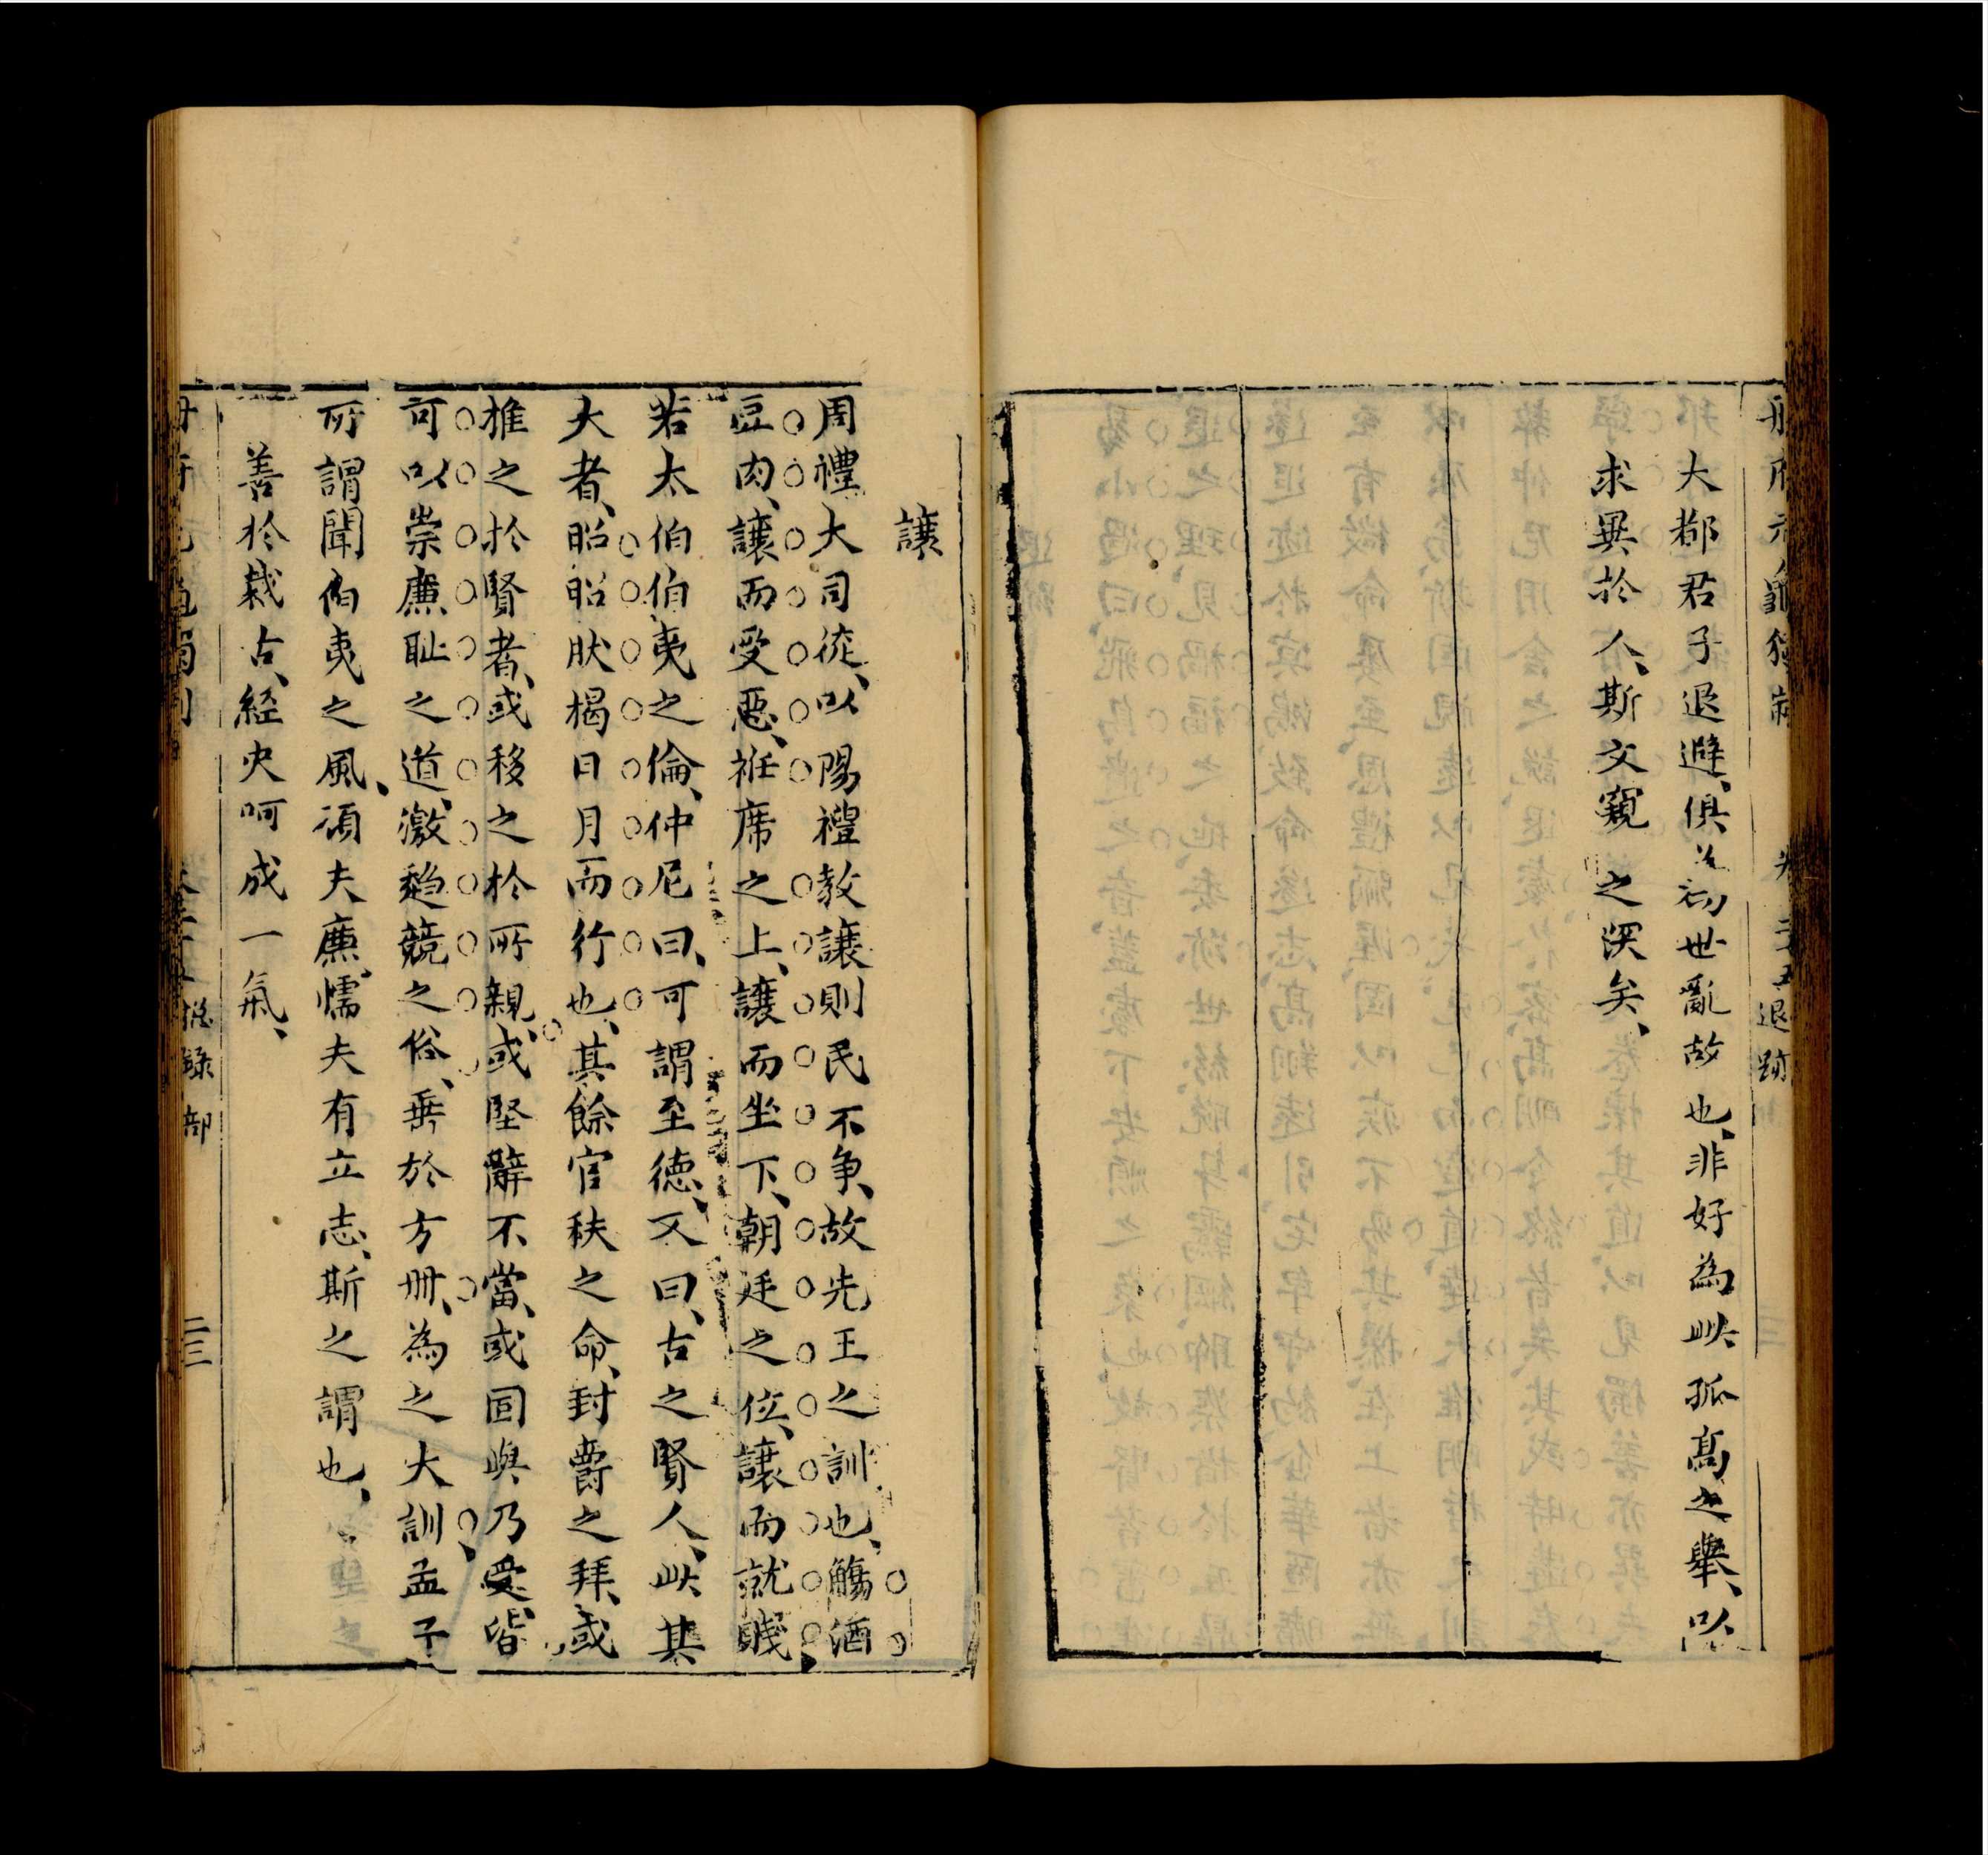 大都君子退避、俱從初世亂故也、非好為此孤高之舉、以
求異於人、斯文窺之深矣、
退跡
讓
周禮、大司徒、以陽禮教讓則民不争、故先王之訓也、觴酒
豆肉、讓而受惡、袵席之上、讓而坐下、朝廷之位、讓而就賤
若太伯伯夷之倫、仲尼曰、可謂至德、又曰、古之賢人、此其
大者、昭昭肰楬日月而行也、其餘官秩之命、封爵之拜、或
推之於賢者、或移之於所親、或堅辭不當、或固與乃受、皆
可以崇廉耻之道、激趨競之俗、垂於方冊、為之大訓、孟子
所謂聞伯夷之風、頑夫廉、懦夫有立志、斯之謂也、
善於裁古、經史呵成一氣、
總錄部
二三